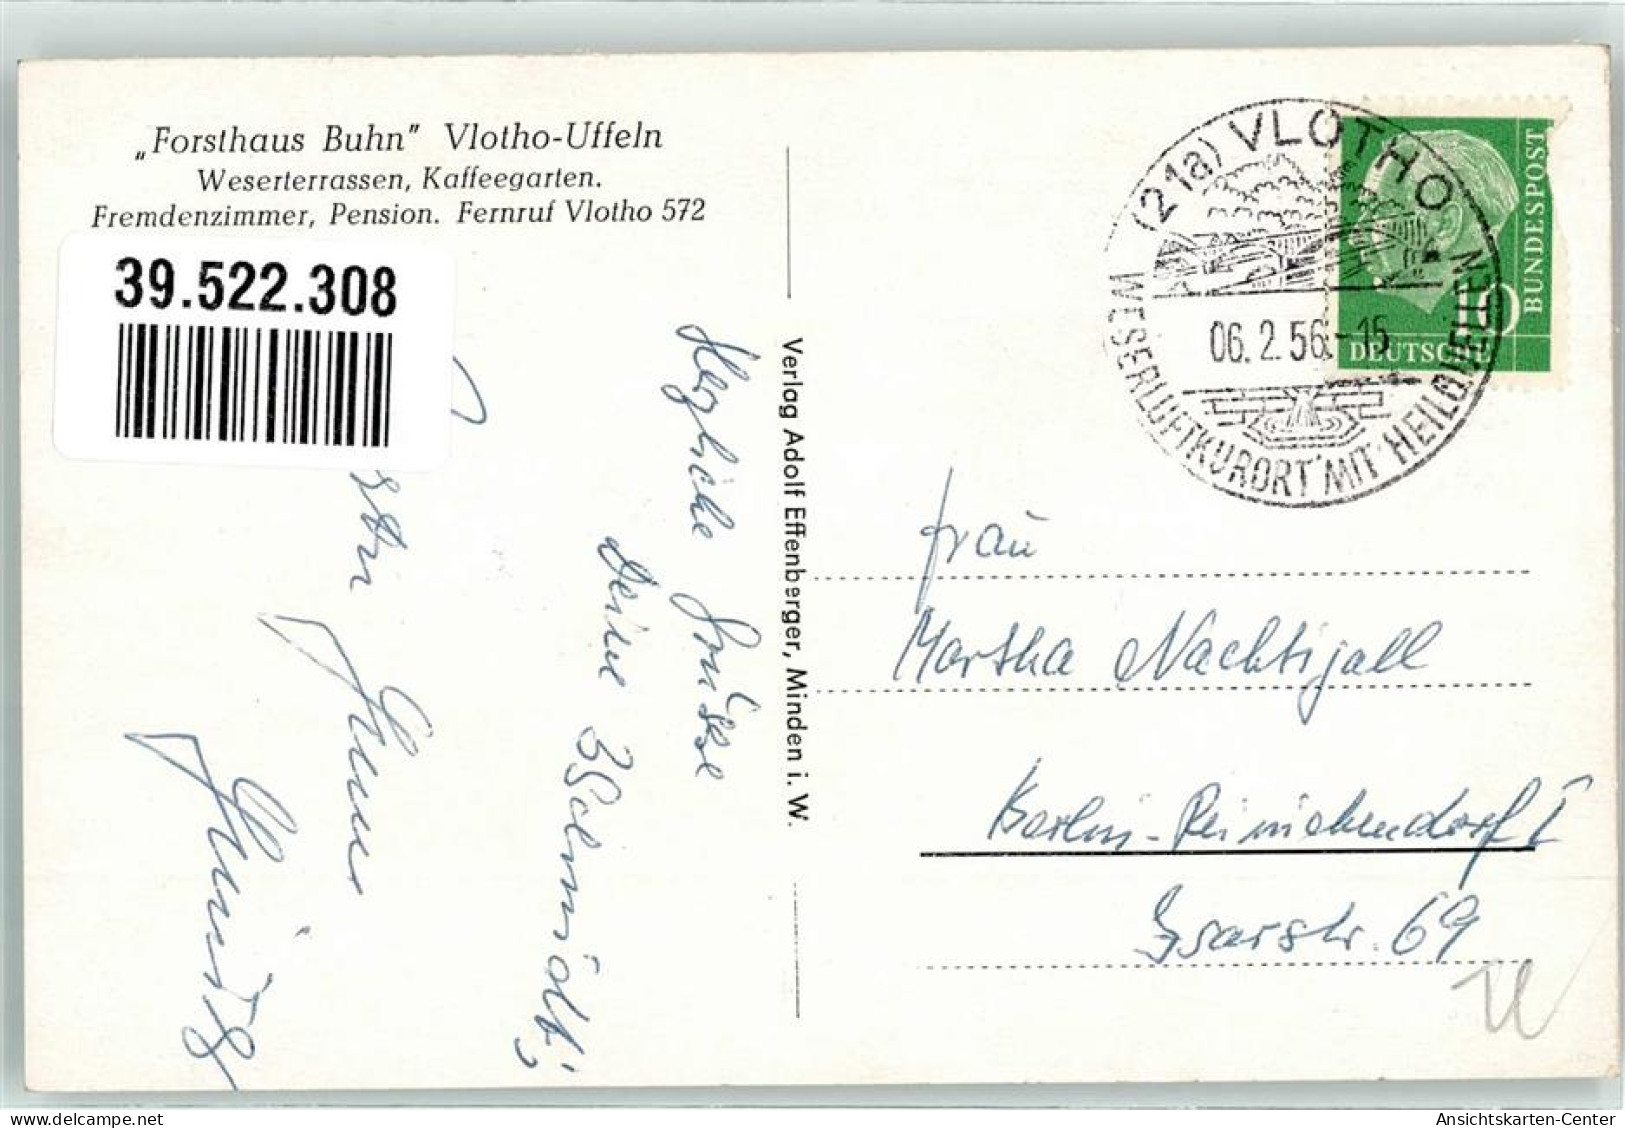 „Forsthaus Buhn" Vlotho-Uffeln
Weserterrassen, Kaffeegarten.
Fremdenzimmer, Pension. Fernruf Vlotho 572
39.522.308
Herzliche Grüße
Deine
Verlag Adolf Effenberger, Minden i. W.
(21a) VLOTHO
06.2.56.-15
WESERLUFTKURORT MIT HEILQUELLEN
DEUTSCHE
BUNDESPOST
Frau
Martha Nachtigall
Berlin-Reinickendorf I
Isarstr. 69
oldthing.de
Ansichtskarten-Center